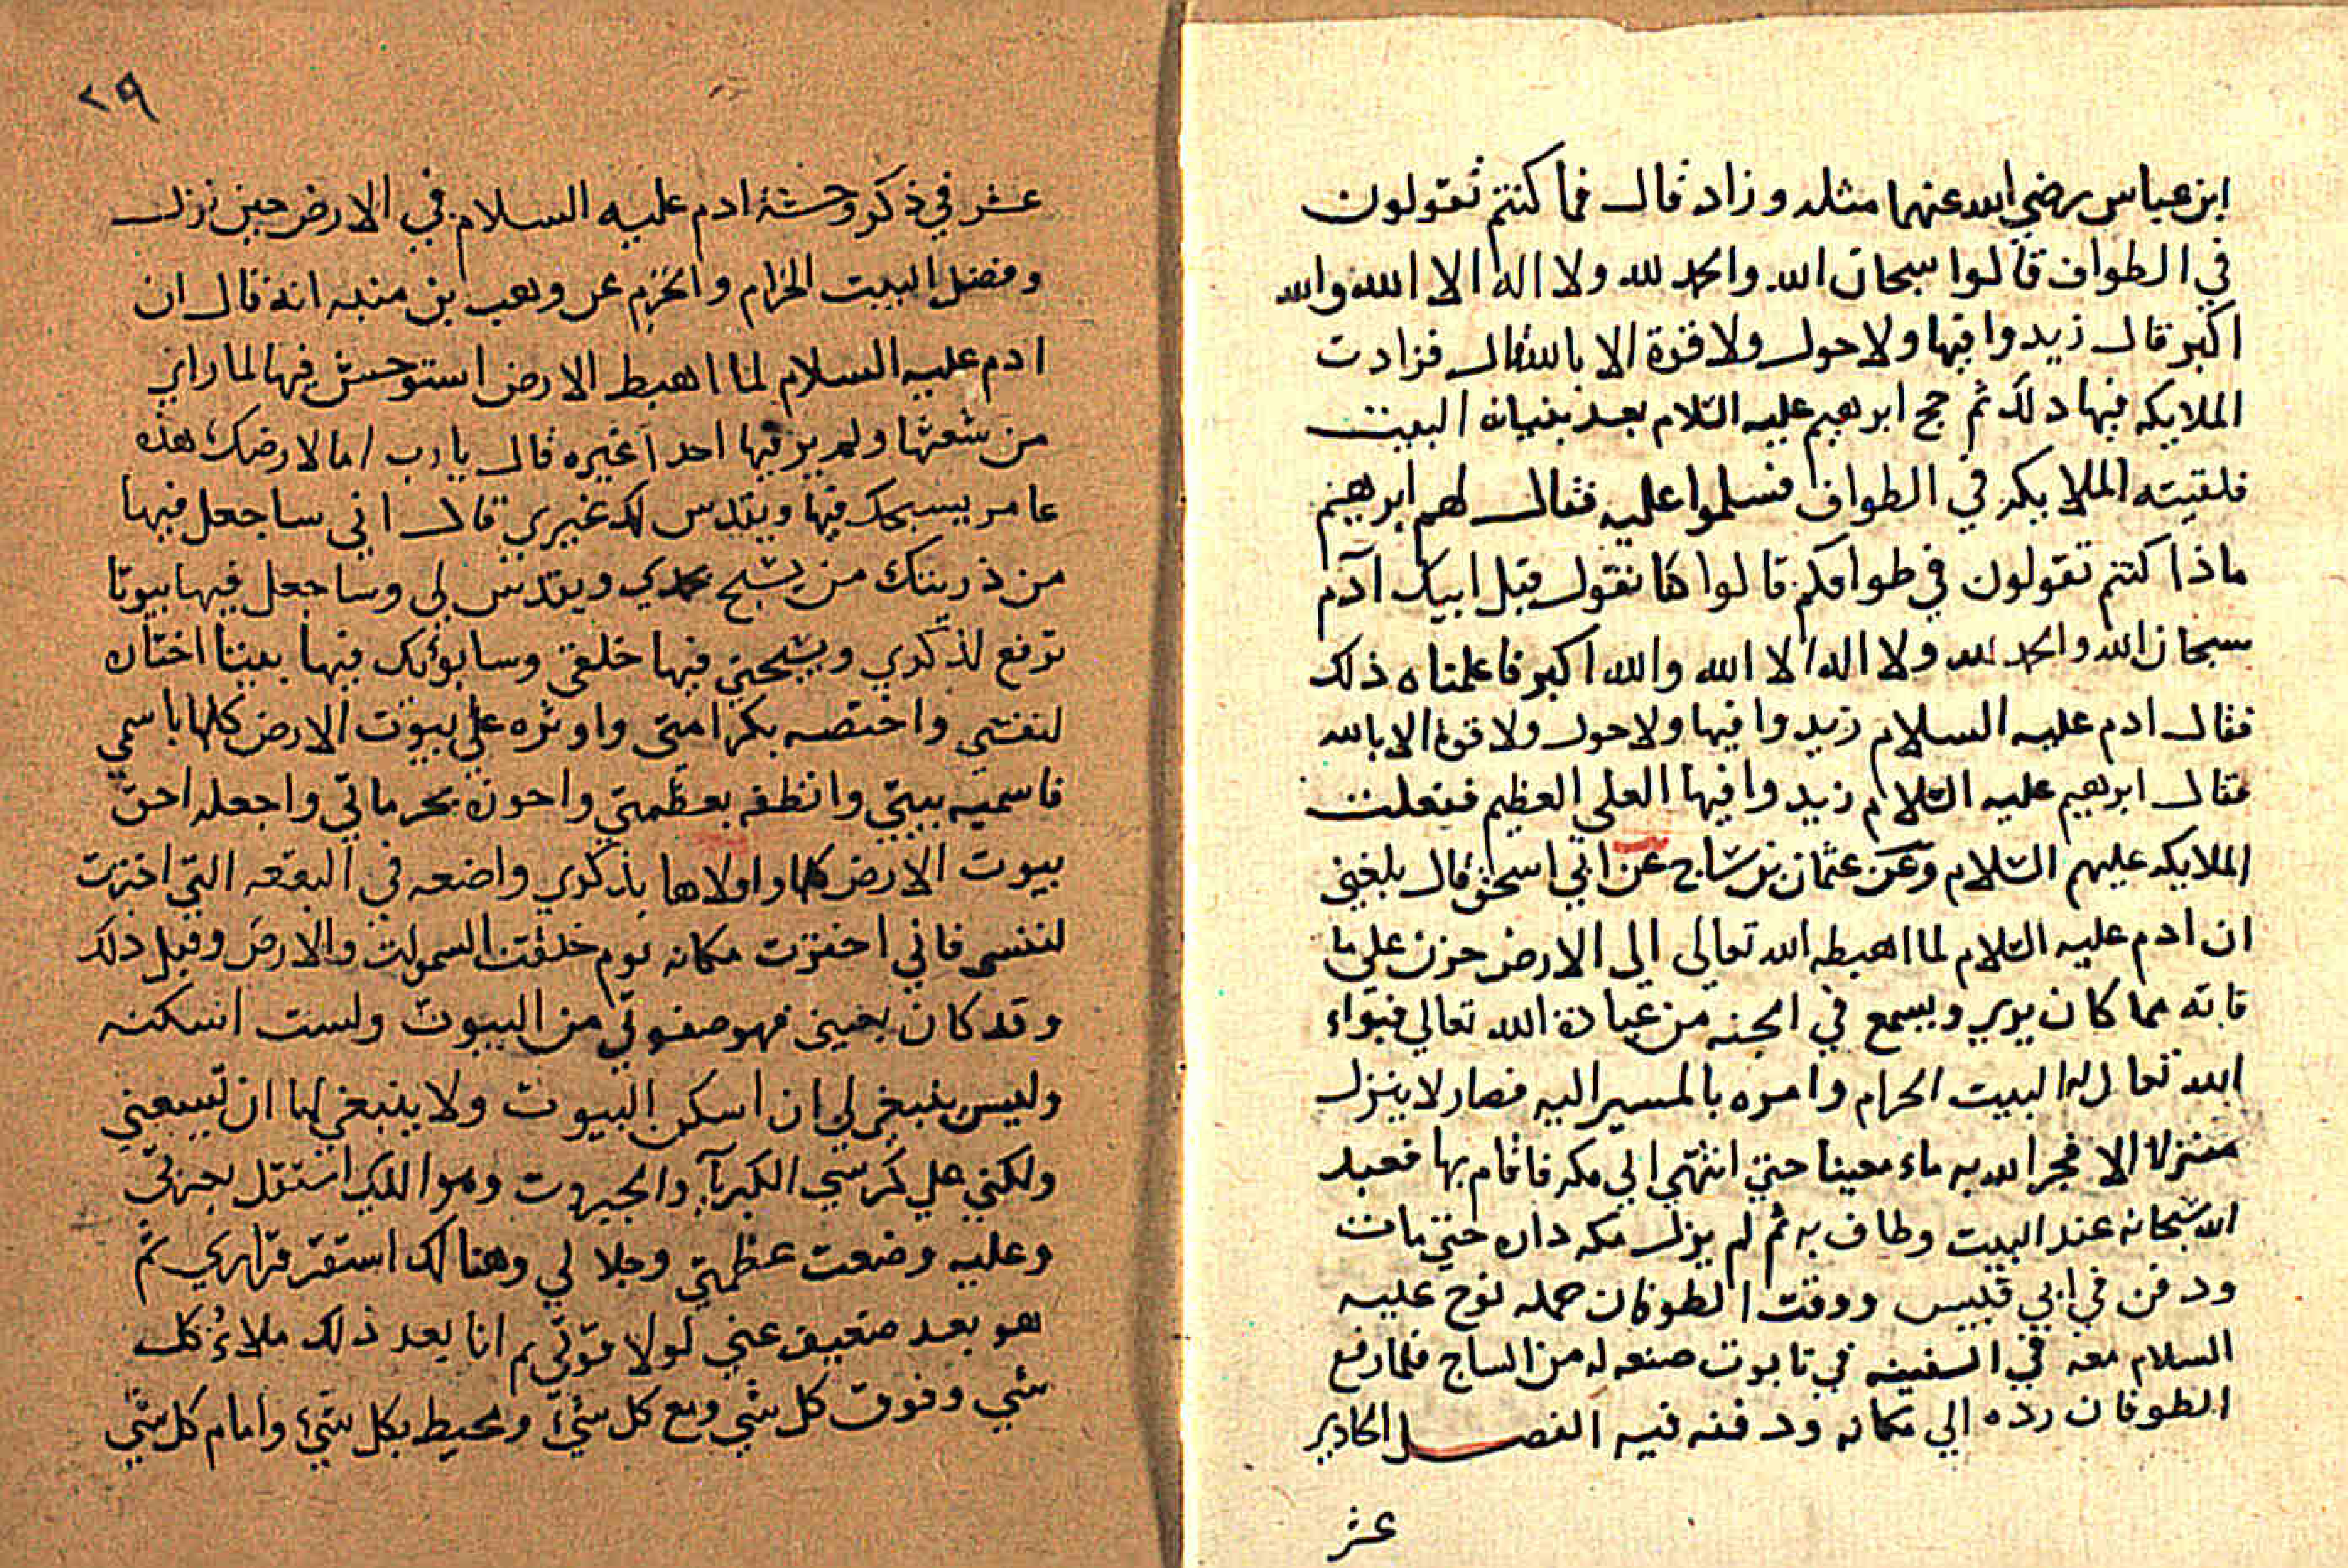 ابن عباس رضي الله عنهما مثله وزاد قال فما كنتم تقولون
في الطواف قالوا سبحان الله والحمد لله ولا اله الا الله والله
اكبر قال زيدوا فيها ولا حول ولا قوة الا بالله قال فزادت
الملايكه فيها ذلك ثم حج ابرهيم عليه السلام بعد بنيانه البيت
فلقيته الملايكه في الطواف فسلموا عليه فقال لهم ابرهيم
ماذا كنتم تقولون في طوافكم قالوا كنا نقول قبل ابيك آدم
سبحان الله والحمد لله ولا اله الا الله والله اكبر فاعلمناه ذلك
فقال ادم عليه السلام زيدوا فيها ولا حول ولا قوة الا بالله
فقال ابرهيم عليه السلام زيدوا فيها العلي العظيم ففعلت
الملايكه عليهم السلام وعن عثمان بن ساج عن ابي اسحق قال بلغني
ان ادم عليه السلام لما اهبطه الله تعالي الي الارض حزن علي ما
فاته مما كان يري ويسمع في الجنه من عبادة الله تعالي فبواء
الله تعالي له البيت الحرام وامره بالمسير اليه فصار لا ينزل
منزلا الا فجر الله به ماء معينا حتي انتهي الي مكه فاقام بها فعبد
الله سبحانه عند البيت وطاف به ثم لم يزل مكه داره حتي مات
ودفن في ابي قبيس ووقت الطوفان حمله نوح عليه
السلام معه في السفينه في تابوت صنعه له من الساج فلما رفع
الطوفان رده الي مكانه ودفنه فيه الفصل الحادير
عشر
٢٩
عشر في ذكر وحشة ادم عليه السلام في الارض حين نزل
وفضل البيت الحرام والحرم عن وهب بن منبه انه قال ان
ادم عليه السلام لما اهبط الارض استوحش فيها لما راي
من سعتها ولم ير فيها احدا غيره قال يا رب اما لارضك هذه
عامر يسبحك فيها ويقدس لك غيري قال اني ساجعل فيها
من ذريتك من يسبح بحمدي ويقدس لي وساجعل فيها بيوتا
ترفع لذكري ويسبحني فيها خلقي وسابوئك فيها بيتا اختاره
لنفسي واختصه بكرامتي واوثره علي بيوت الارض كلها باسمي
فاسميه بيتي وانطقه بعظمتي واحوزه بحرماتي واجعله احق
بيوت الارض كلها واولاها بذكري واضعه في البقعه التي اخترت
لنفسي فاني اخترت مكانه يوم خلقت السموات والارض وقبل ذلك
وقد كان بعيني فهو صفوتي من البيوت ولست اسكنه
وليس ينبغي لي ان اسكن البيوت ولا ينبغي لها ان تسعني
ولكني علي كرسي الكبرياء والجبروت وهو الذي استقل بعزتي
وعليه وضعت عظمتي وجلالي وهنالك استقر قراري ثم
هو بعد ضعيف عني لولا قوتي ثم انا بعد ذلك ملاء كل
شي وفوق كل شي ومع كل شيء ومحيط بكل شيء وامام كل شي